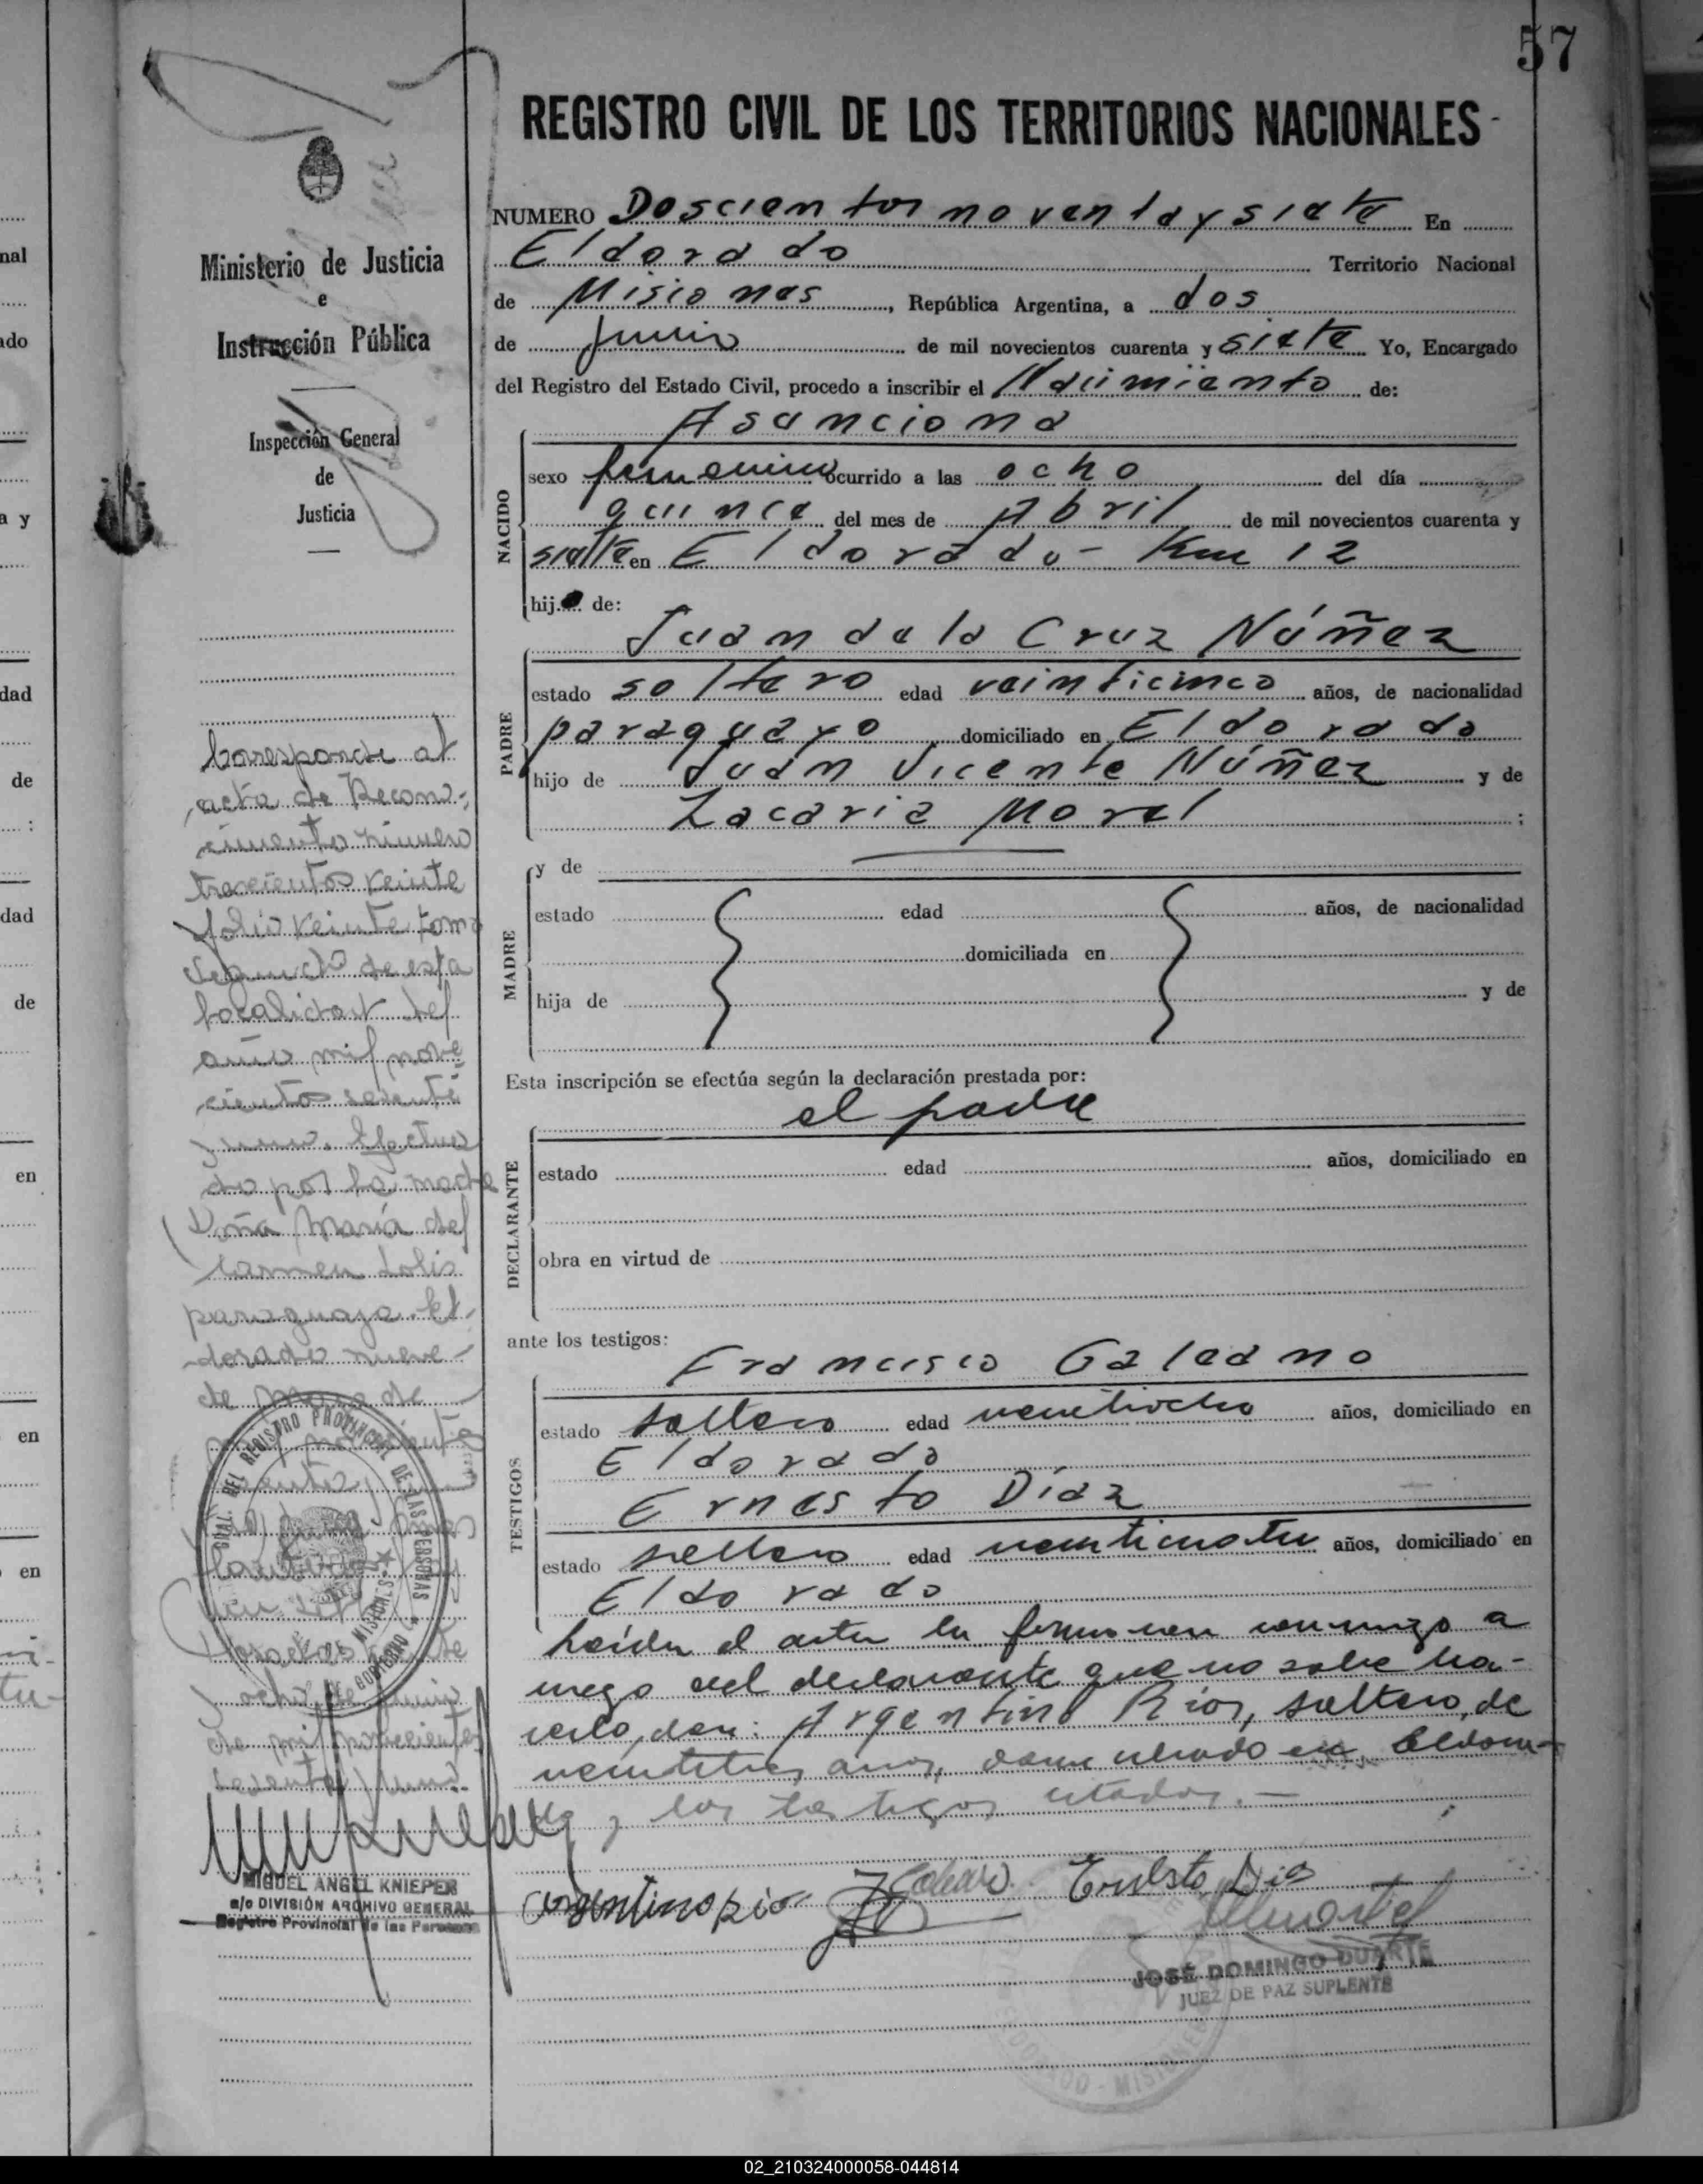 57
REGISTRO CIVIL DE LOS TERRITORIOS NACIONALES
NUMERO Doscientos noventa y siete En
Eldorado Territorio Nacional
de Misiones, República Argentina, a dos
de junio de mil novecientos cuarenta y siete Yo, Encargado
del Registro del Estado Civil, procedo a inscribir el Nacimiento de:
Asunciona
NACIDO
sexo femenino ocurrido a las ocho del día
quince del mes de Abril de mil novecientos cuarenta y
siete en Eldorado - Km 12
hij de:
Juan de la Cruz Núñez
PADRE
estado soltero edad veinticinco años, de nacionalidad
paraguayo domiciliado en Eldorado
hijo de Juan Vicente Núñez y de
Zacaria Morel ;
MADRE
y de
estado edad años, de nacionalidad
domiciliada en
hija de y de
Esta inscripción se efectúa según la declaración prestada por:
el padre
DECLARANTE
estado edad años, domiciliado en
obra en virtud de
ante los testigos:
Francisco Galeano
TESTIGOS
estado soltero edad veintiocho años, domiciliado en
Eldorado
Ernesto Díaz
estado soltero edad veinticuatro años, domiciliado en
Eldorado
Leída el acta la firman conmigo a
ruego del declarante que no sabe ha-
cerlo, don: Argentino Ríos, soltero, de
veintitres años, domiciliado en Eldora-
do y los testigos citados.-
Argentino Rio Ernesto Dia
JOSÉ DOMINGO DUARTE
JUEZ DE PAZ SUPLENTE
ELDORADO - MISIONES
Ministerio de Justicia
e
Instrucción Pública
Inspección General
de
Justicia
Coresponde al
acta de Recono-
cimiento número
trecientos veinte
folio veinte tomo
segundo de esta
localidad del
año mil nove
cientos sesenta
y uno. Efectua
do por la madre
Doña María del
Carmen Solis
paraguaya. El-
dorado nueve
de
y ocho de junio
de mil novecientos
sesenta y uno.
GRAL. DEL REGISTRO PROVINCIAL DE LAS PERSONAS
MISIONES
GOBIERNO
MIGUEL ANGEL KNIEPER
a/c DIVISIÓN ARCHIVO GENERAL
Registro Provincial de las Personas
nal
ado
a y
dad
de
:
dad
de
en
en
en
02_210324000058-044814